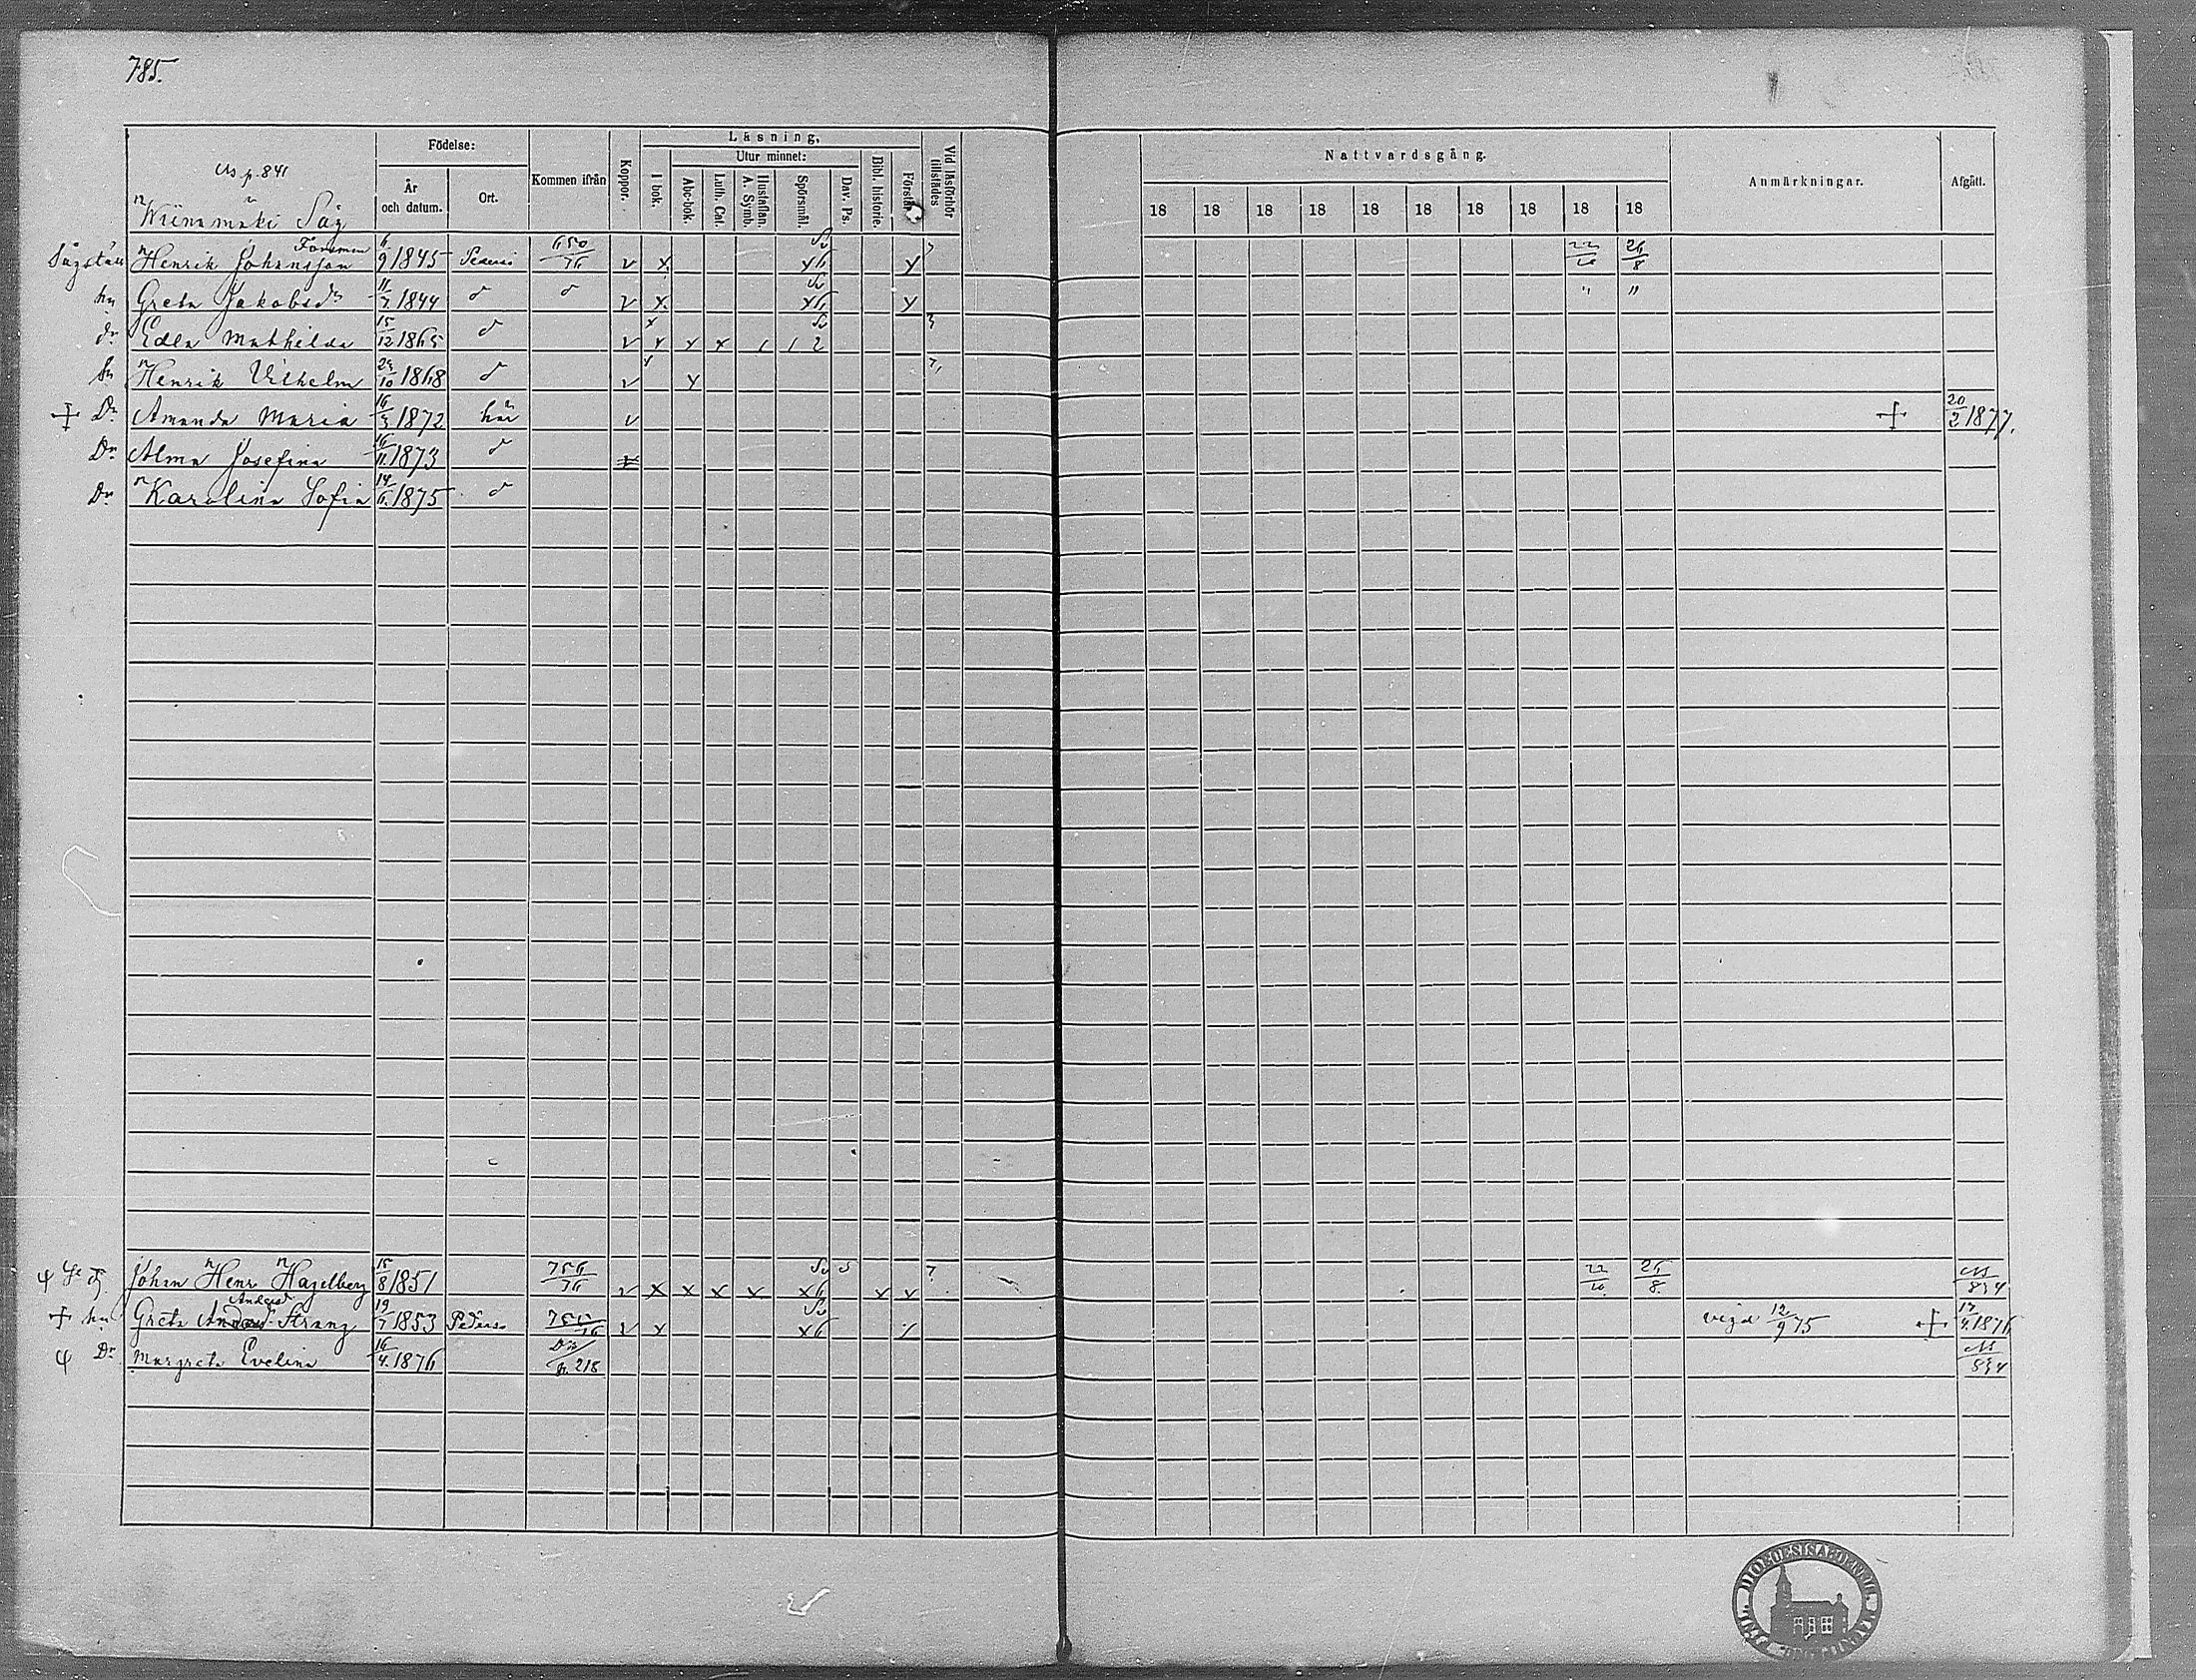 785.
Ns p. 841
Wiinamäki Såg
Födelse:
År och datum.
Ort.
Kommen ifrån
Koppor.
Läsning,
I bok.
Utur minnet:
Abc-bok.
Luth. Cat.
Hustaflan. A. Symb.
Spörsmål.
Dav. Ps.
Bibl. historie.
Förstår
Vid läsförhör tillstädes
Nattvardsgång.
18 18 18 18 18 18 18 18 18 18
Anmärkningar.
Afgått.
Henrik Johansson Forsman 6/9 1845 650/76 v x x6 y 26/8
hu Greta Jakobsdr 11/7 1844 d d v x x6 y " "
dr Edla Mathilda 15/12 1865 d v x x x / / 2
Sn Henrik Vilhelm 23/10 1868 d v y
+ Dr Amanda Maria 16/3 1872 här v + 20/2 1877.
Dr Alma Josefina 16/11 1873 d
Dr Karolina Sofia 14/6 1875 d
Johan Henr Hagelberg 15/8 1851 756/76 v x x x x x6 x y 22/10 26/8 Ns/834
+ hu Greta Andersd Strang 19/7 1853 Peders v x x6 vigd 12/9 75 + 17/4 1876
Dr Margreta Evelina 16/4 1876 p. 218 Ns/834